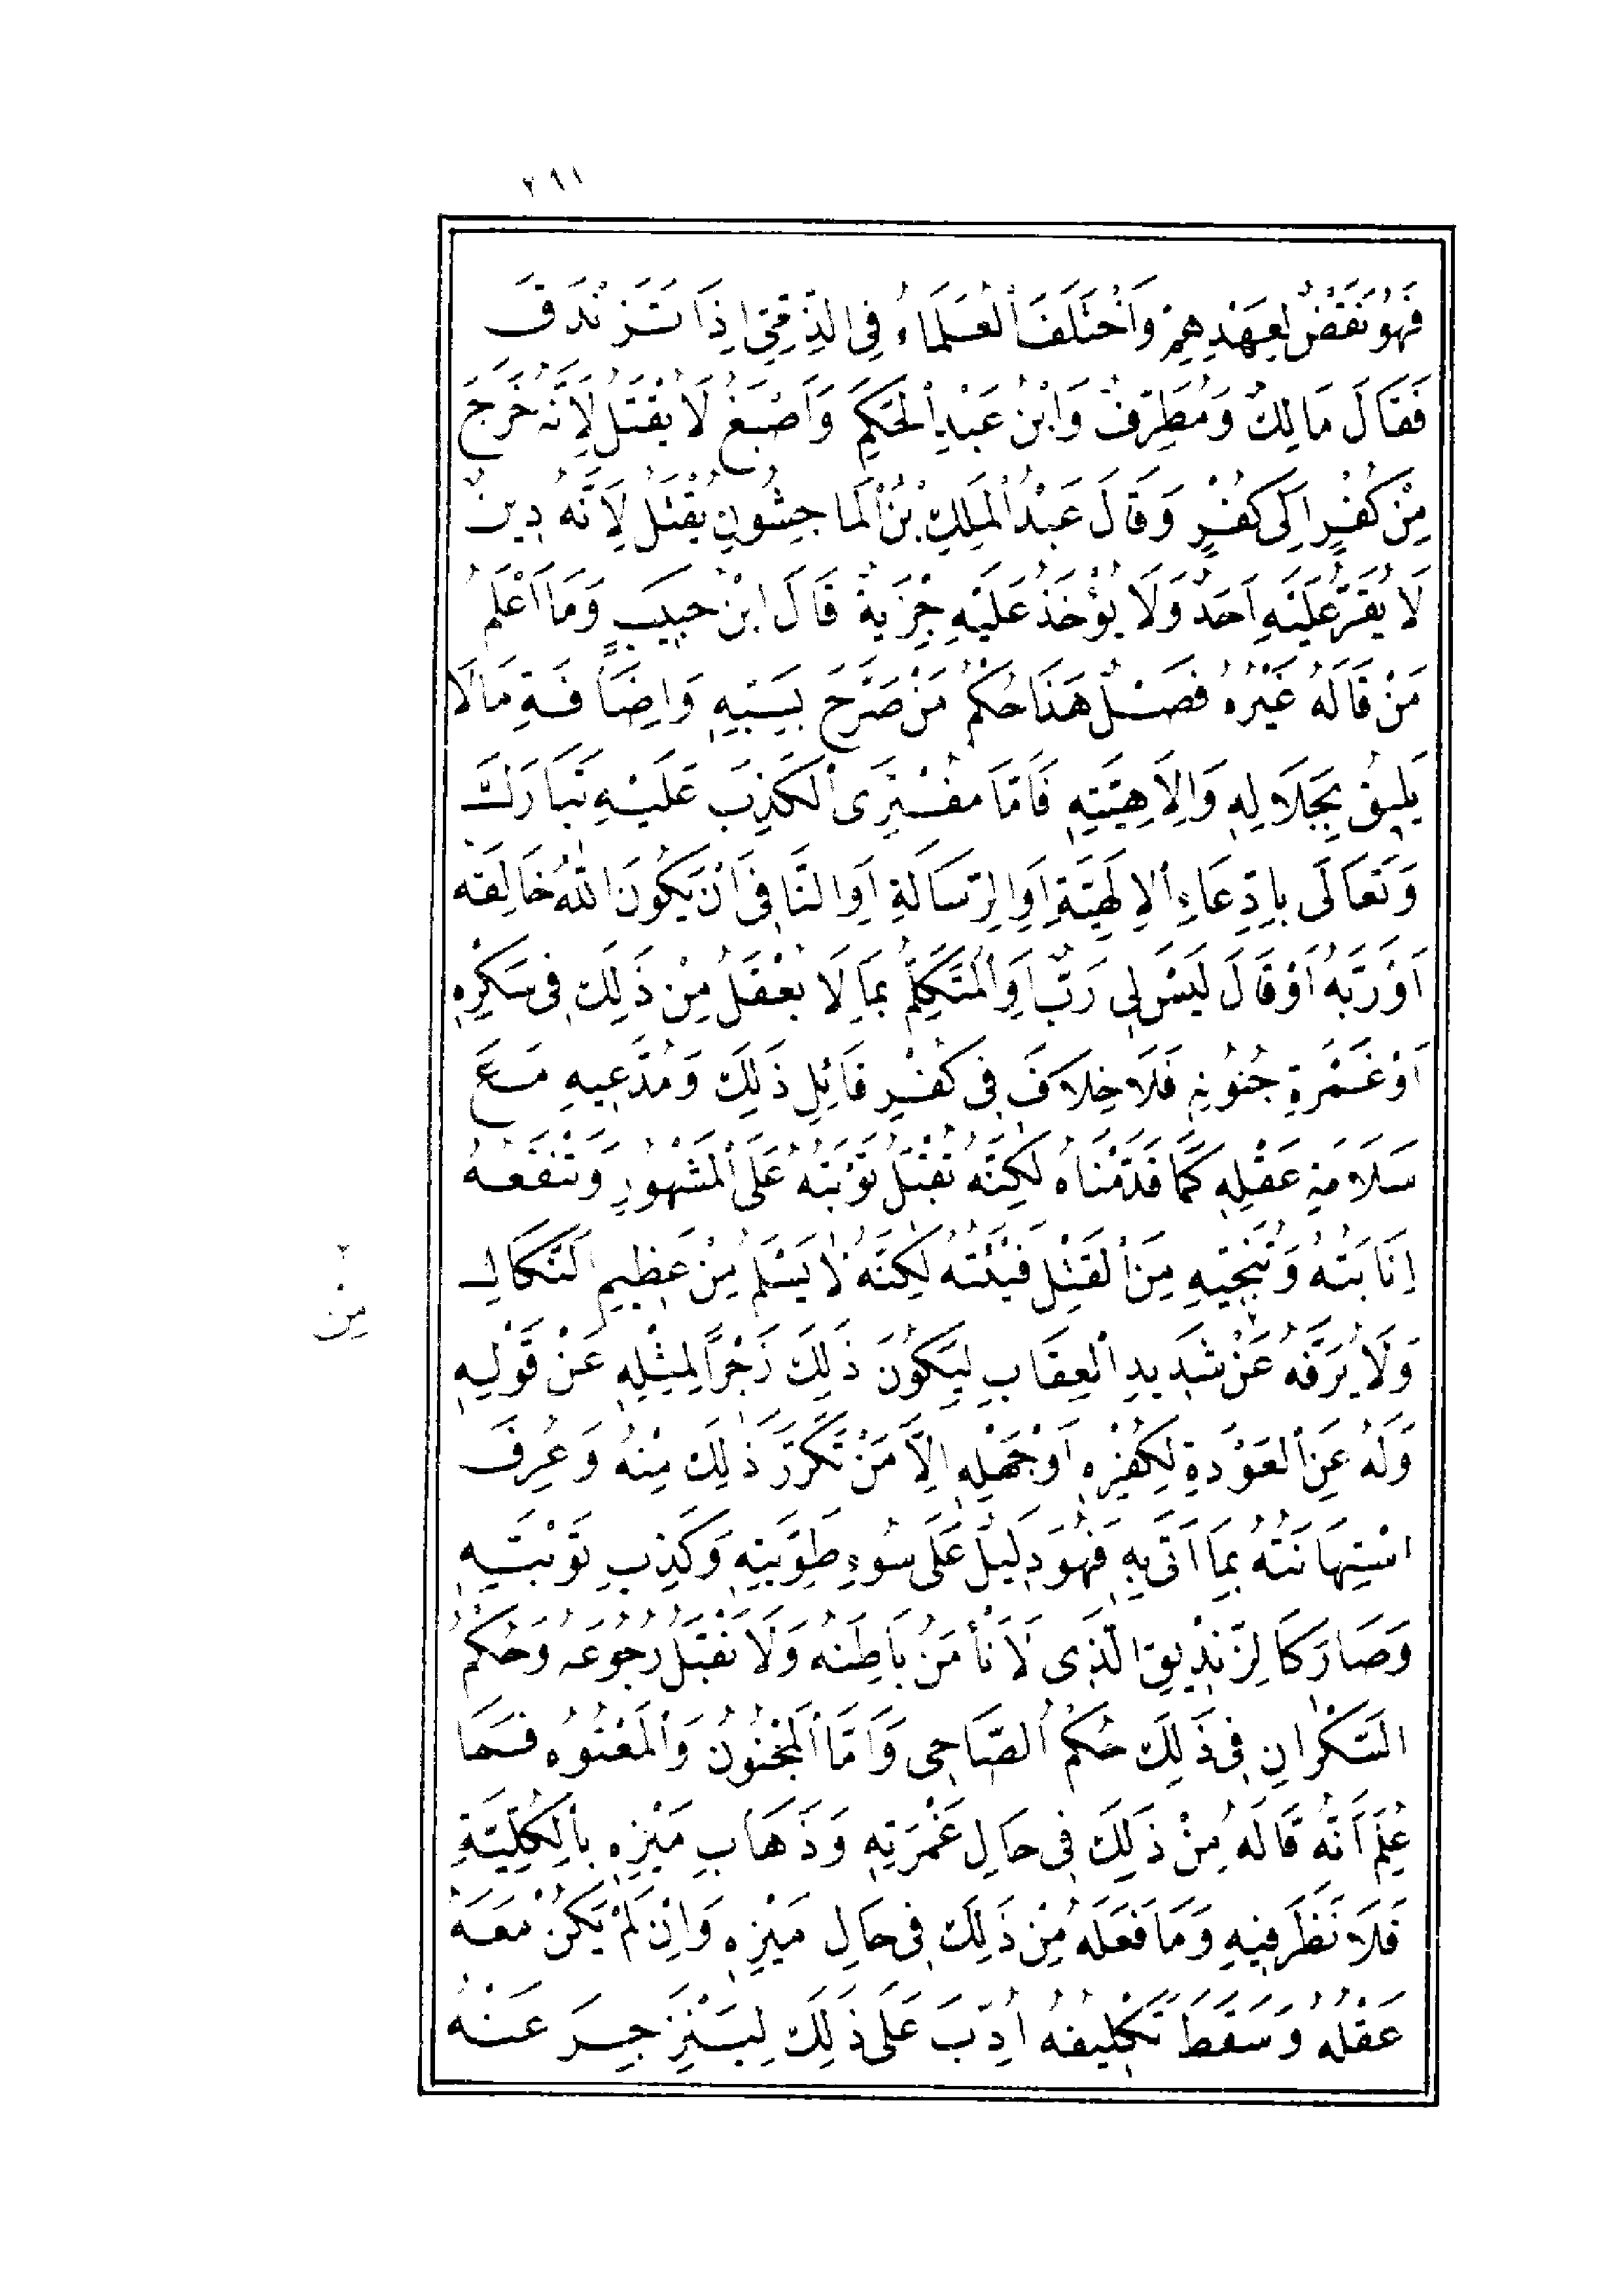 ٢٩١
فَهُوَ نَقْضٌ لِعَهْدِهِمْ وَاخْتَلَفَ الْعُلَمَاءُ فِي الذِّمِّيِّ اِذَا تَزَنْدَقَ
فَقَالَ مَالِكٌ وَمُطَرِّفٌ وَابْنُ عَبْدِ الْحَكَمِ وَاَصْبَغُ لَا يُقْتَلُ لِاَنَّهُ خَرَجَ
مِنْ كُفْرٍ اِلَى كُفْرٍ وَقَالَ عَبْدُ الْمَلِكِ بْنُ الْمَاجِشُونِ يُقْتَلُ لِاَنَّهُ دِينٌ
لَا يُقَرُّ عَلَيْهِ اَحَدٌ وَلَا يُؤْخَذُ عَلَيْهِ جِزْيَةٌ قَالَ ابْنُ حَبِيبٍ وَمَا اَعْلَمُ
مَنْ قَالَهُ غَيْرُهُ فَصْلٌ هَذَا حُكْمُ مَنْ صَرَّحَ بِسَبِّهِ وَاِضَافَةِ مَا لَا
يَلِيقُ بِجَلَالِهِ وَاِلَاهِيَّتِهِ فَاَمَّا مُفْتَرِي الْكَذِبَ عَلَيْهِ تَبَارَكَ
وَتَعَالَى بِادِّعَاءِ الْاِلٰهِيَّةِ اَوِ الرِّسَالَةِ اَوِ النَّافِي اَنْ يَكُونَ اللّٰهُ خَالِقَهُ
اَوْ رَبَّهُ اَوْ قَالَ لَيْسَ لِي رَبٌّ اَوِ الْمُتَكَلِّمُ بِمَا لَا يُعْقَلُ مِنْ ذَلِكَ فِي سَكْرِهِ
اَوْ غَمْرَةِ جُنُونِهِ فَلَا خِلَافَ فِي كُفْرِ قَائِلِ ذَلِكَ وَمُدَّعِيهِ مَعَ
سَلَامَةِ عَقْلِهِ كَمَا قَدَّمْنَاهُ لَكِنَّهُ تُقْبَلُ تَوْبَتُهُ عَلَى الْمَشْهُورِ وَتَنْفَعُهُ
اِنَابَتُهُ وَتُنْجِيهِ مِنَ الْقَتْلِ فَيْئَتُهُ لَكِنَّهُ لَا يَسْلَمُ مِنْ عَظِيمِ النَّكَالِ
وَلَا يُرَفَّهُ عَنْ شَدِيدِ الْعِقَابِ لِيَكُونَ ذَلِكَ زَجْرًا لِمِثْلِهِ عَنْ قَوْلِهِ
وَلَهُ عَنِ الْعَوْدَةِ لِكُفْرِهِ اَوْ جَهْلِهِ اِلَّا مَنْ تَكَرَّرَ ذٰلِكَ مِنْهُ وَعُرِفَ
اسْتِهَانَتُهُ بِمَا اَتَى بِهِ فَهُوَ دَلِيلٌ عَلَى سُوءِ طَوِيَّتِهِ وَكَذِبِ تَوْبَتِهِ
وَصَارَ كَالزِّنْدِيقِ الَّذِي لَا نَأْمَنُ بَاطِنَهُ وَلَا نَقْبَلُ رُجُوعَهُ وَحُكْمُ
السَّكْرَانِ فِي ذَلِكَ حُكْمُ الصَّاحِي وَاَمَّا الْمَجْنُونُ وَالْمَعْتُوهُ فَمَا
عُلِمَ اَنَّهُ قَالَهُ مِنْ ذَلِكَ فِي حَالِ غَمْرَتِهِ وَذَهَابِ مَيْزِهِ بِالْكُلِّيَّةِ
فَلَا نَظَرَ فِيهِ وَمَا فَعَلَهُ مِنْ ذَلِكَ فِي حَالِ مَيْزِهِ وَاِنْ لَمْ يَكُنْ مَعَهُ
عَقْلُهُ وَسَقَطَ تَكْلِيفُهُ اُدِّبَ عَلَى ذَلِكَ لِيَنْزَجِرَ عَنْهُ
٢
مِن